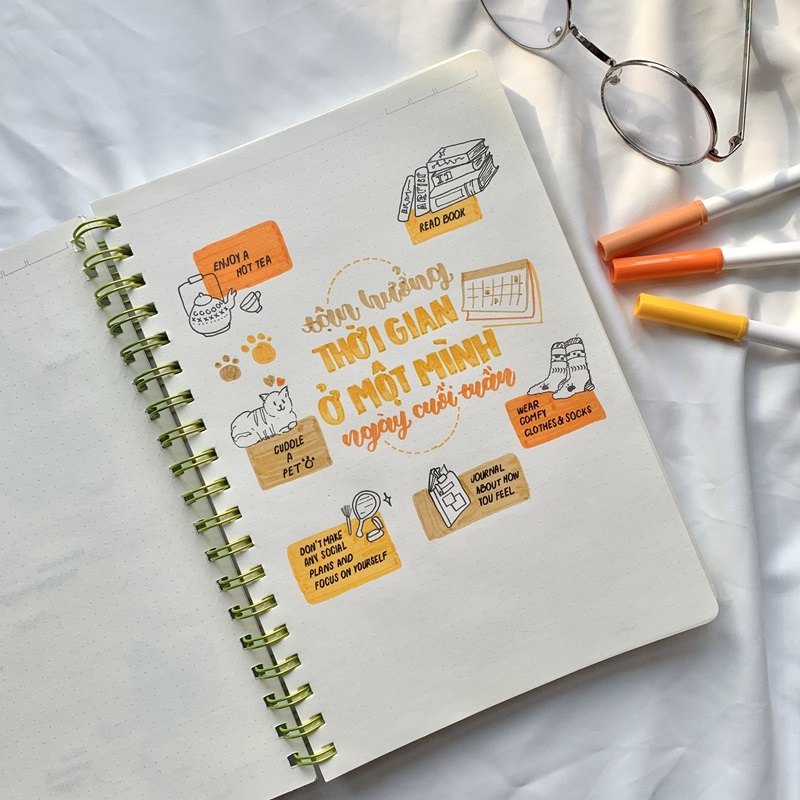 READ BOOK
ENJOY A
HOT TEA
tận hưởng
THỜI GIAN
Ở MỘT MÌNH
ngày cuối tuần
WEAR
COMFY
CLOTHES & SOCKS
CUDDLE
A
PET
JOURNAL
ABOUT HOW
YOU FEEL
DON'T MAKE
ANY SOCIAL
PLANS AND
FOCUS ON YOURSELF